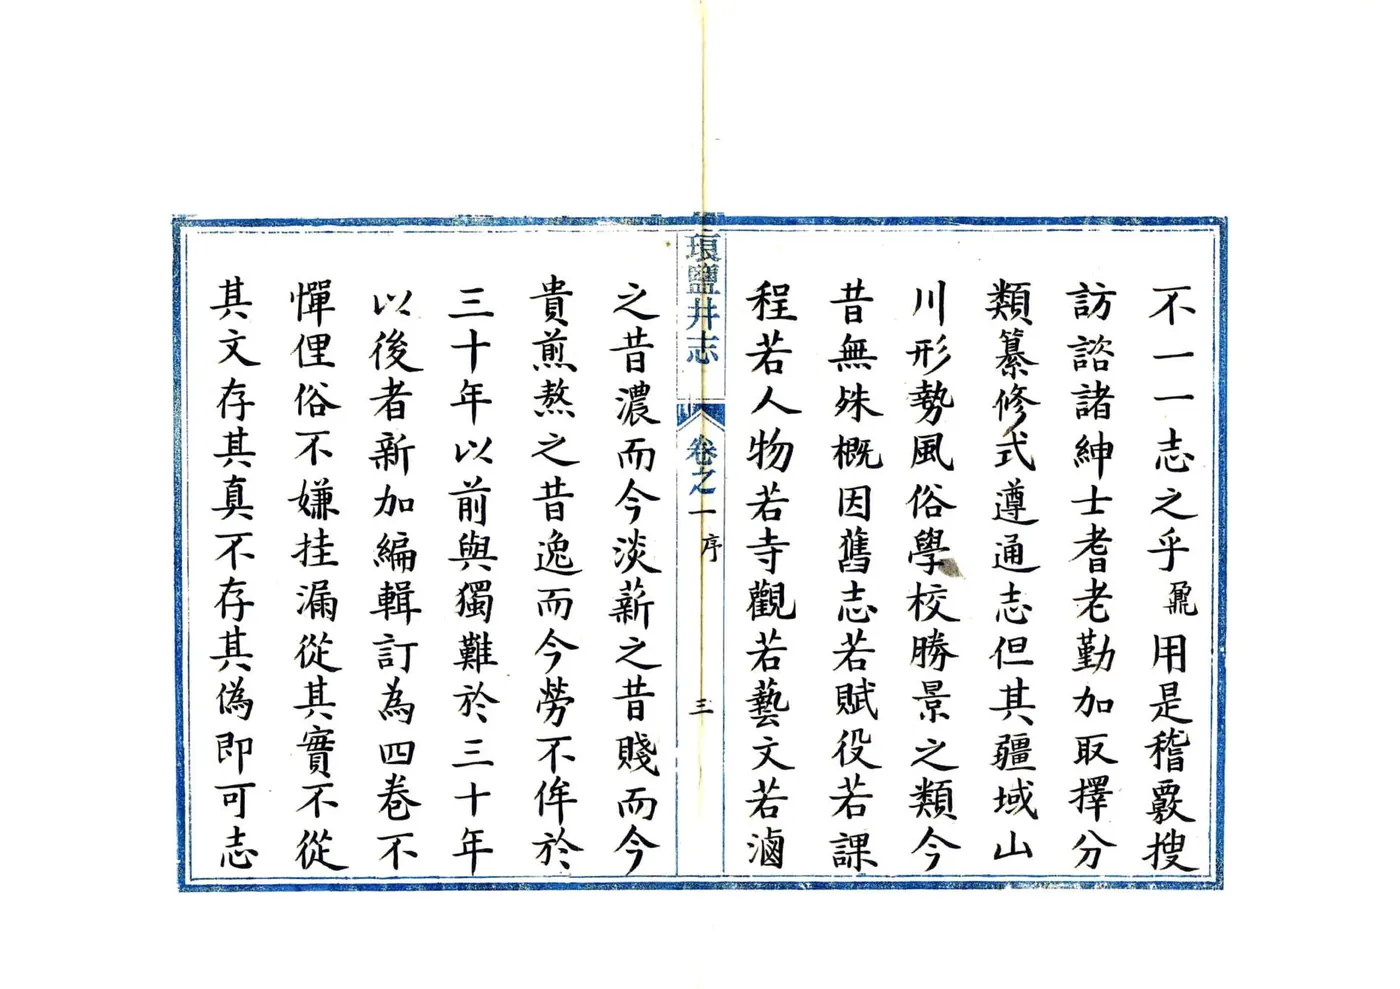 不一一志之乎鼐用是稽覈搜
訪諮諸紳士耆老勤加取擇分
類纂修式遵通志但其疆域山
川形勢風俗學校勝景之類今
昔無殊概因舊志若賦役若課
程若人物若寺觀若藝文若滷
琅鹽井志 卷之一 序 三
之昔濃而今淡薪之昔賤而今
貴煎熬之昔逸而今勞不侔於
三十年以前與獨難於三十年
以後者新加編輯訂為四卷不
憚俚俗不嫌挂漏從其實不從
其文存其真不存其偽即可志